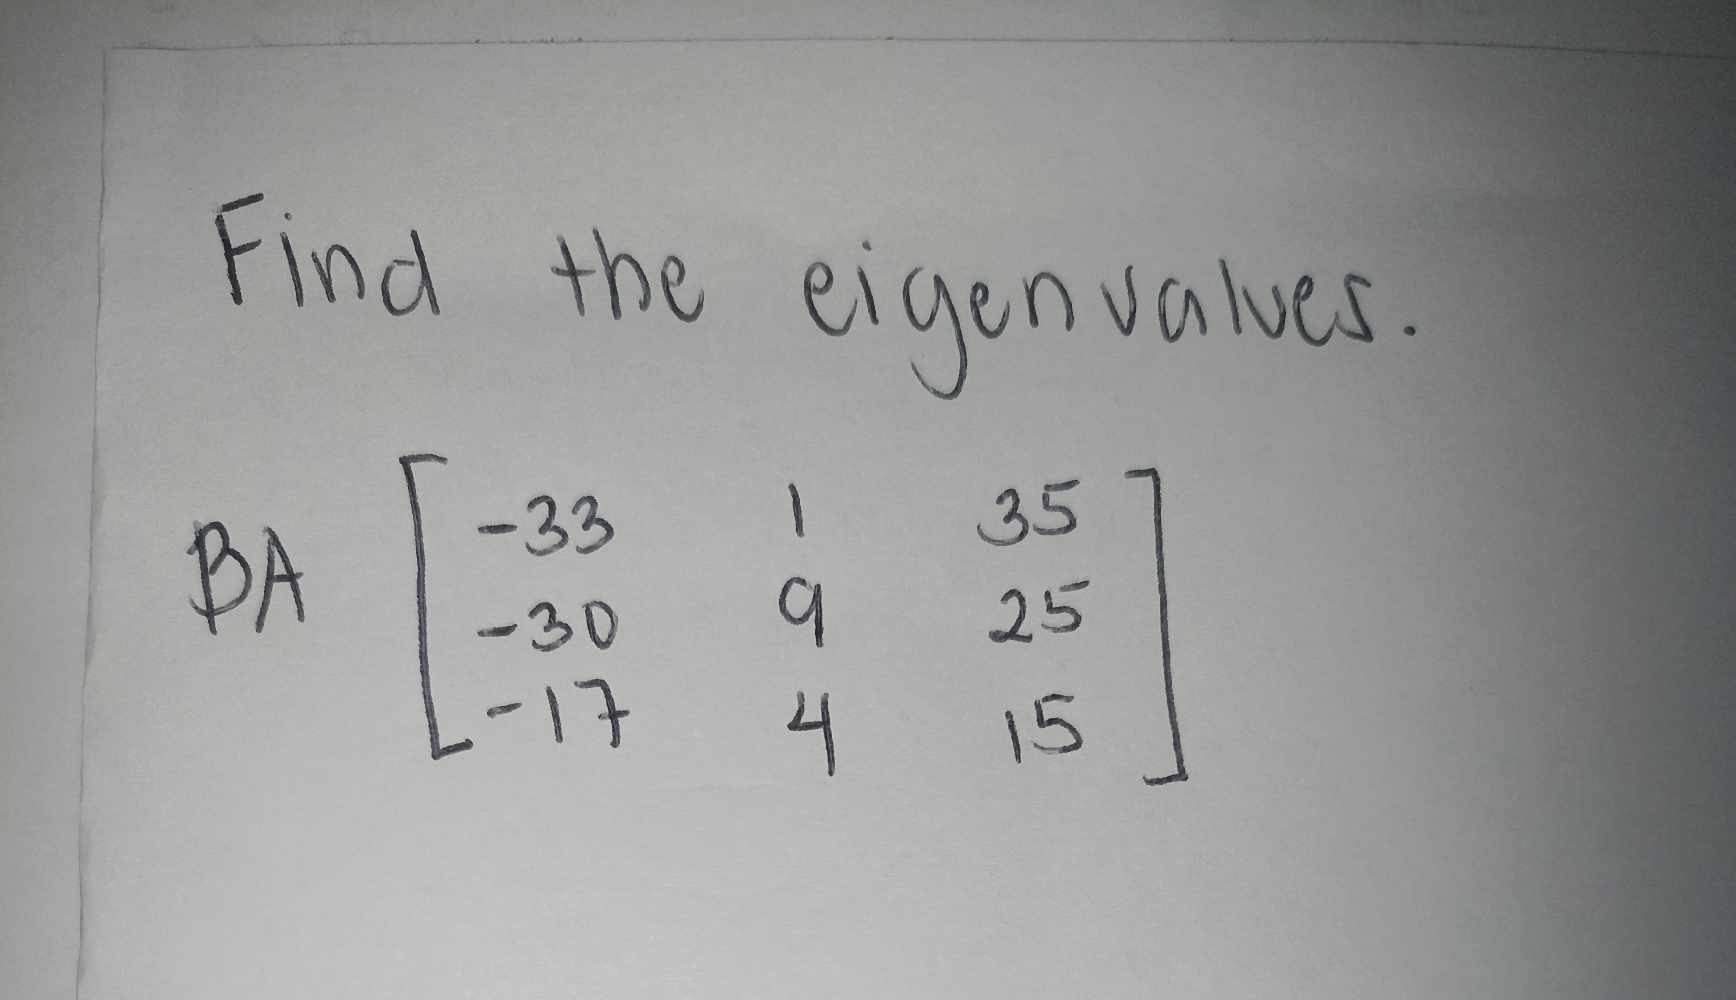 Find the eigenvalues.
BA [ -33 1 35 ]
-30 9 25
-17 4 15